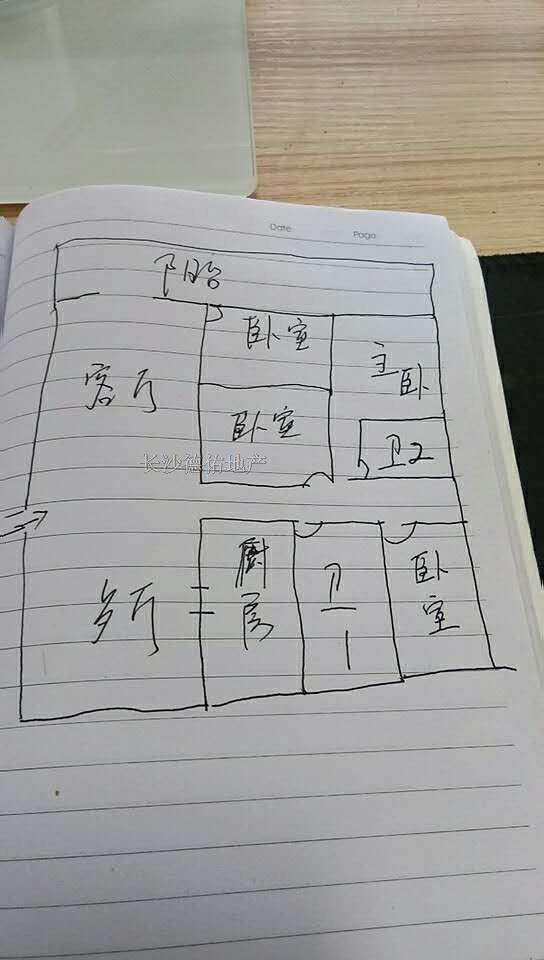 Date
Page
阳台
卧室
主卧
客厅
卧室
卫2
长沙德佑地产
厨房
卫1
卧室